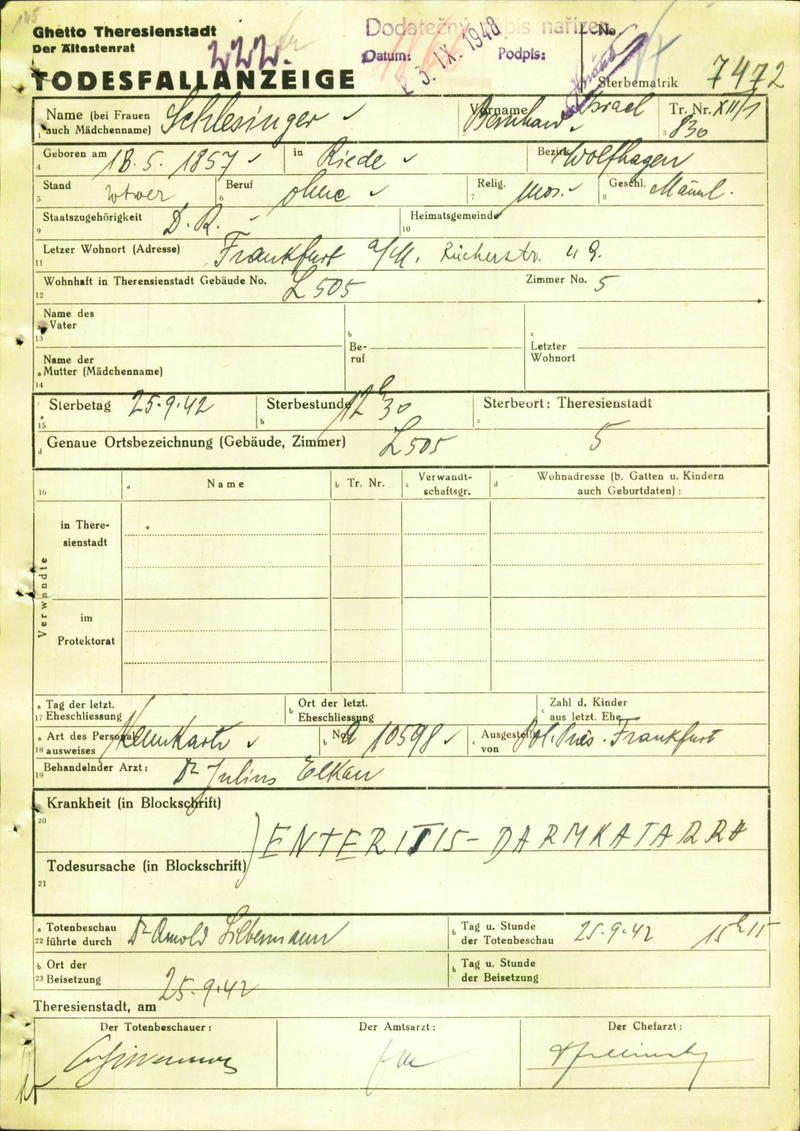 Ghetto Theresienstadt
Der Ältestenrat
TODESFALLANZEIGE
Dodatečný nařízen
Datum: 3. IX. 1948 Podpis:
No
Sterbematrik 7472
Name (bei Frauen auch Mädchenname) Schlesinger
Vorname Bernhard Israel
Tr. Nr. XII/1
3 830
4 Geboren am 18. 5. 1857 in Riede Bezirk Wolfhagen
5 Stand Witwer 6 Beruf ohne 7 Relig. mos. 8 Geschl. Männl.
9 Staatszugehörigkeit D. R. 10 Heimatsgemeinde
11 Letzer Wohnort (Adresse) Frankfurt a/M.
12 Wohnhaft in Theresienstadt Gebäude No. L 505 Zimmer No. 5
13 a Name des Vater
14 a Name der Mutter (Mädchenname)
b Beruf
c Letzter Wohnort
15 a Sterbetag 25.9.42 b Sterbestunde 12h30 c Sterbeort: Theresienstadt
d Genaue Ortsbezeichnung (Gebäude, Zimmer) L 505 5
16 a Name b Tr. Nr. c Verwandtschaftsgr. d Wohnadresse (b. Gatten u. Kindern auch Geburtdaten):
Verwandte
in Theresienstadt
im Protektorat
17 a Tag der letzt. Eheschliessung b Ort der letzt. Eheschliessung c Zahl d. Kinder aus letzt. Ehe
18 a Art des Personalausweises Kennkarte b No. A 10598 c Ausgestellt von Pol. Präs. Frankfurt
19 Behandelnder Arzt: Dr Julius Elkan
20 Krankheit (in Blockschrift)
ENTERITIS - DARMKATARRH
21 Todesursache (in Blockschrift)
22 a Totenbeschau führte durch Dr Arnold Silbermann b Tag u. Stunde der Totenbeschau 25.9.42 15h15
23 b Ort der Beisetzung b Tag u. Stunde der Beisetzung
Theresienstadt, am 25.9.42
Der Totenbeschauer: Der Amtsarzt: Der Chefarzt: